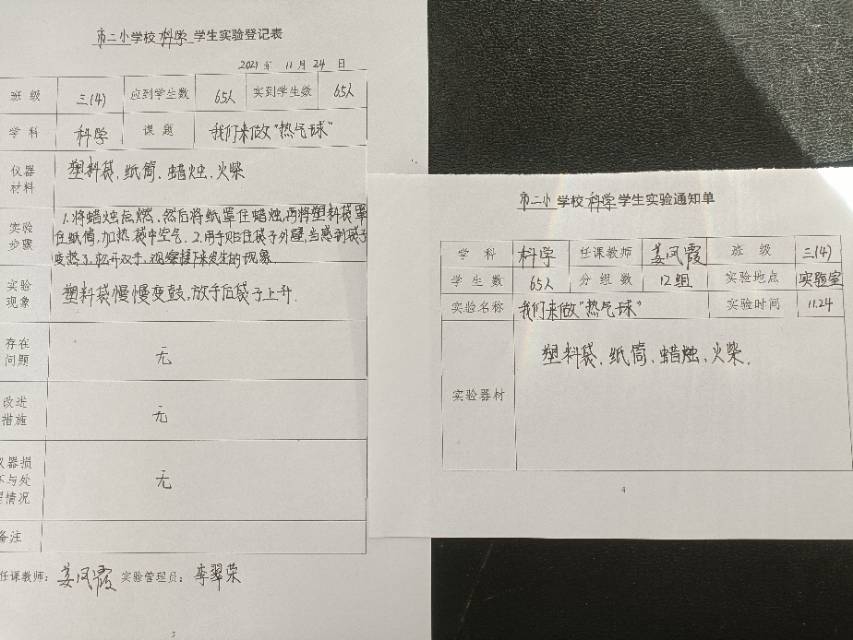 市二小学校科学学生实验登记表
2021年 11月 24 日
班级 三(4) 应到学生数 65人 实到学生数 65人
学科 科学 课题 我们来做“热气球”
仪器材料 塑料袋、纸筒、蜡烛、火柴
实验步骤 1.将蜡烛点燃,然后将纸罩住蜡烛,再将塑料袋罩
住纸筒,加热袋中空气。2.用手贴住袋子外壁,当感到袋子
变热了,松开双手,观察接下来发生的现象
实验现象 塑料袋慢慢变鼓,放手后袋子上升.
存在问题 无
改进措施 无
仪器损坏与处理情况 无
备注
任课教师: 姜凤霞 实验管理员: 李翠荣
市二小学校科学学生实验通知单
学科 科学 任课教师 姜凤霞 班级 三(4)
学生数 65人 分组数 12组 实验地点 实验室
实验名称 我们来做“热气球” 实验时间 11.24
实验器材 塑料袋、纸筒、蜡烛、火柴.
4